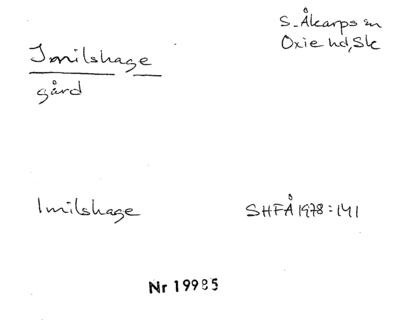 S. Åkarps sn
Oxie hd, Sk
Imilshage
gård
Imilshage
SHFÅ 1978:141
Nr 19985